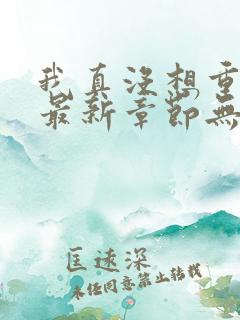 我真没想重
最新章節無
匡速深
未经同意禁止转载